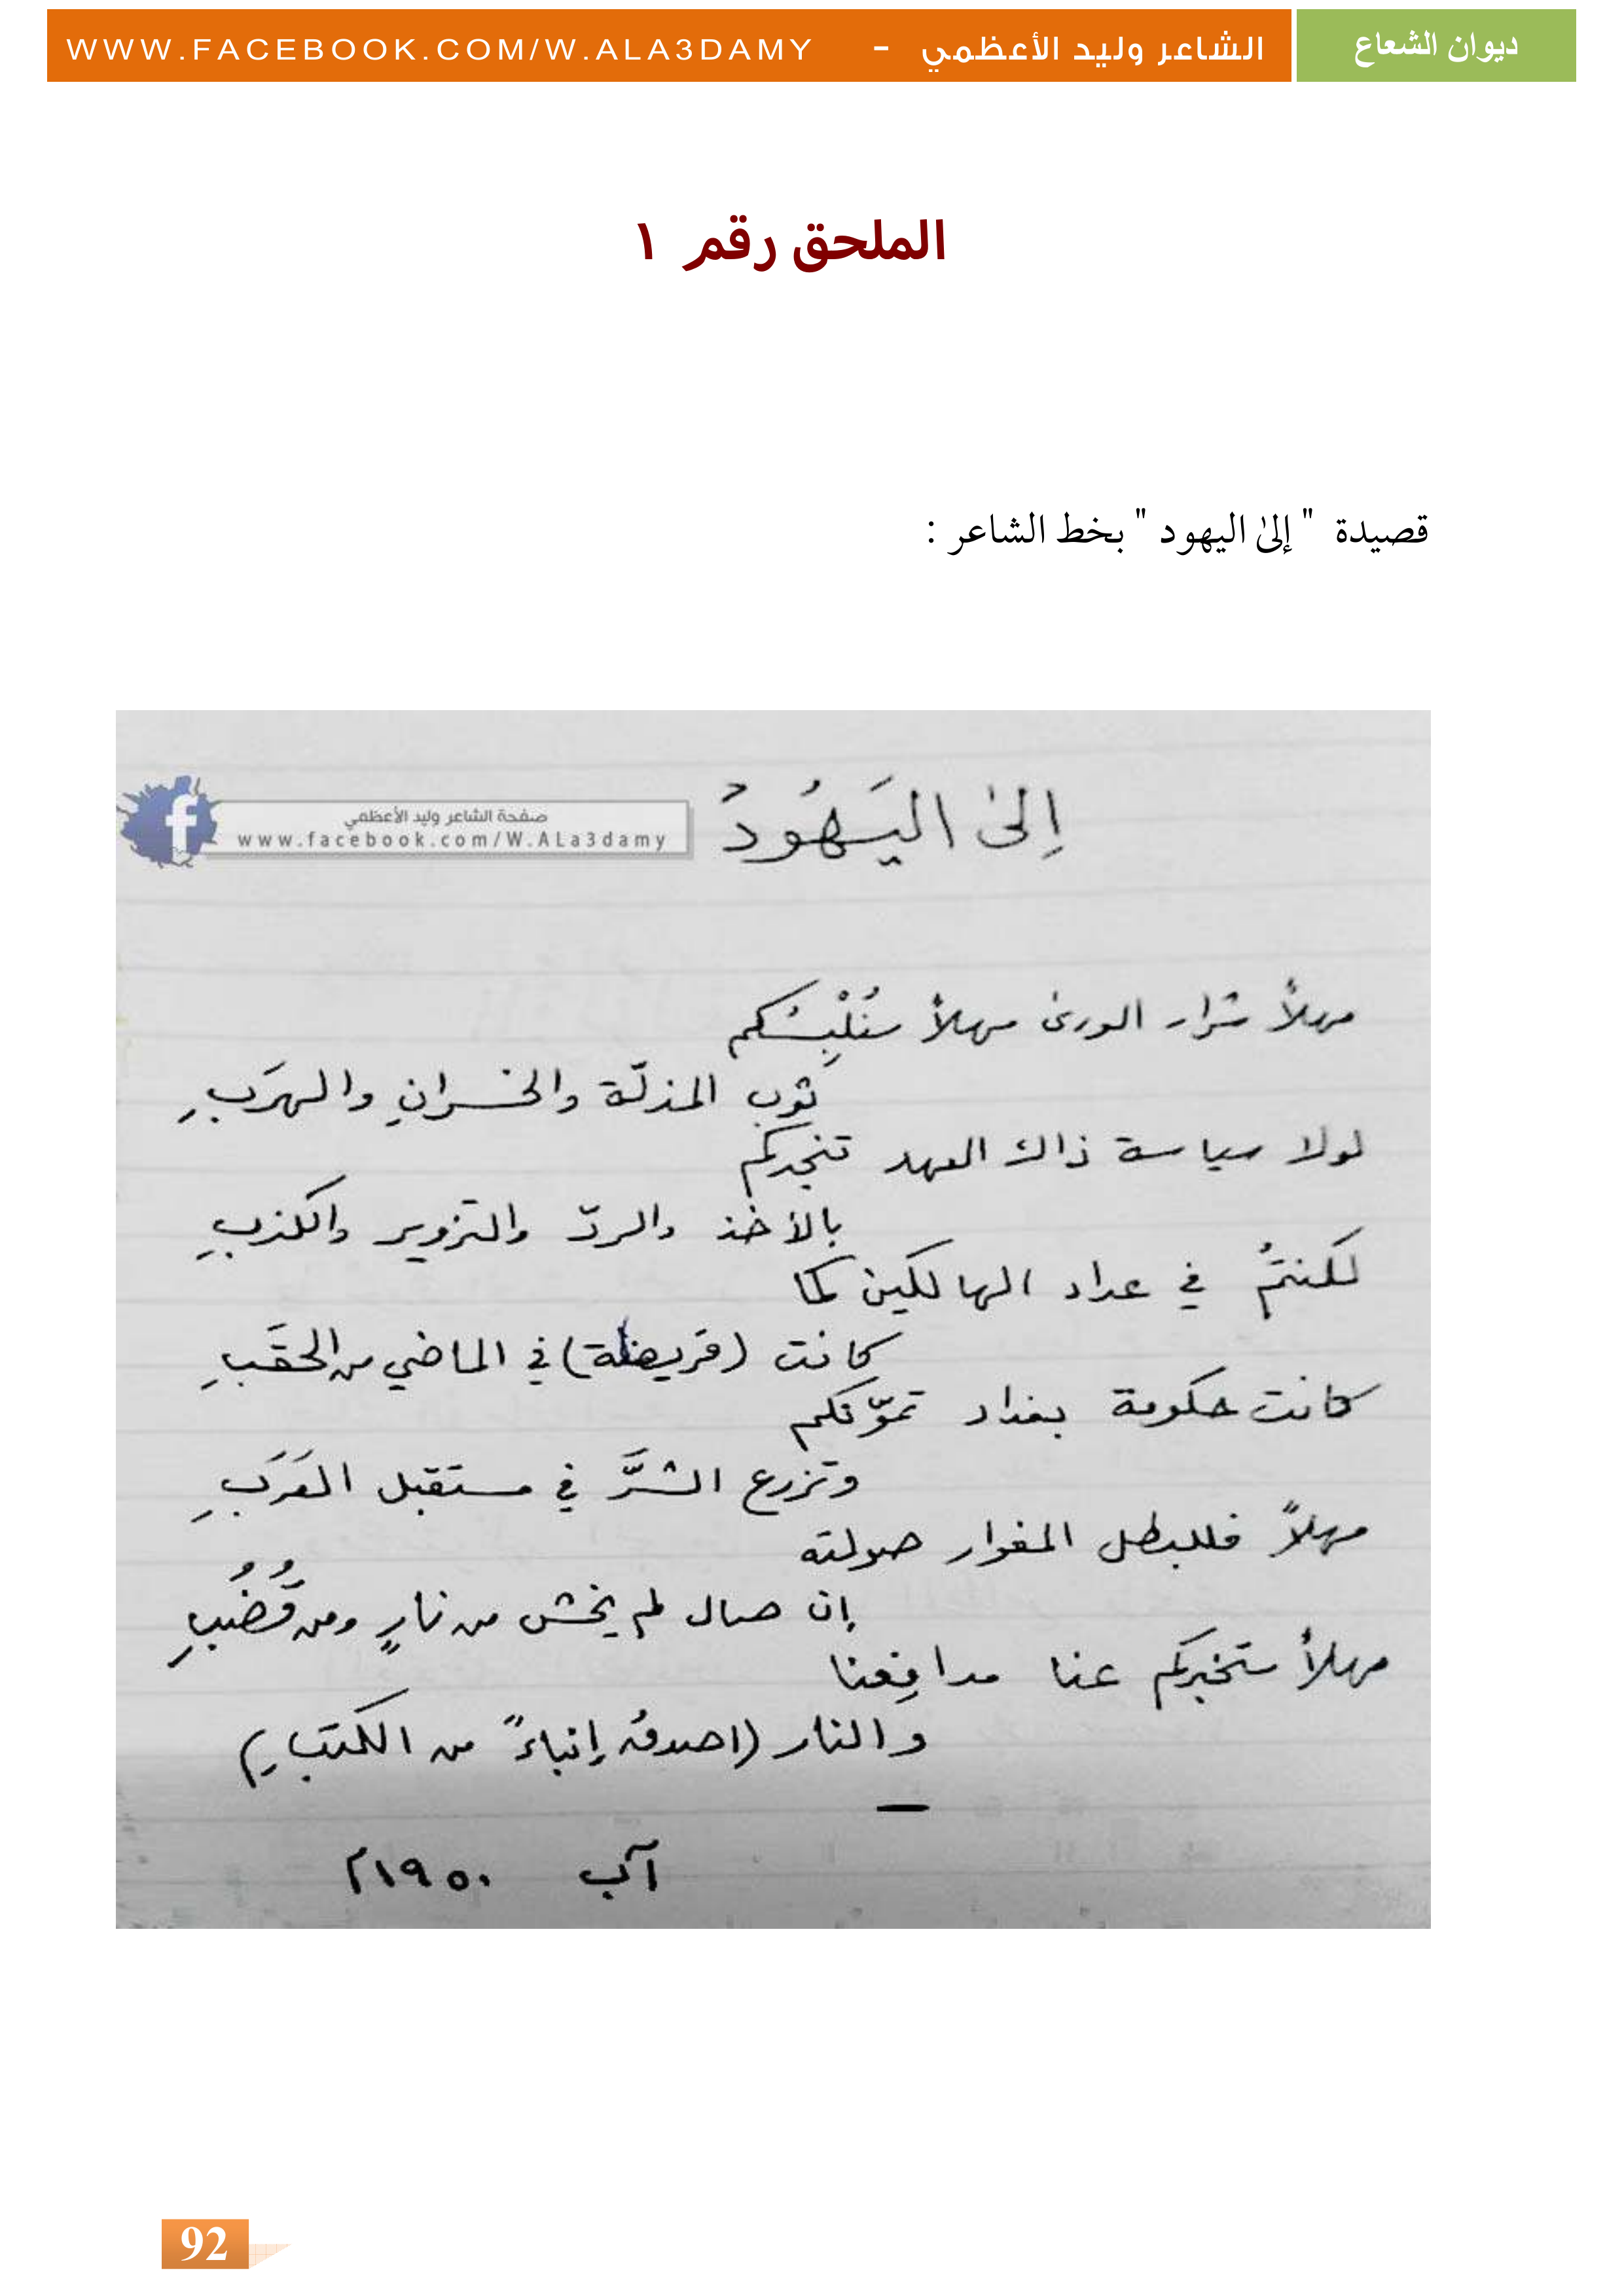 ديوان الشعاع
الشاعر وليد الأعظمي - WWW.FACEBOOK.COM/W.ALA3DAMY
الملحق رقم ١
قصيدة " إلىٰ اليهود " بخط الشاعر :
إلىٰ اليَهُودْ
صفحة الشاعر وليد الأعظمي
www.facebook.com/W.ALa3damy
مهلاً شرار الورىٰ مهلاً سنُلْبِسُكم
ثوبَ المذلّة والخسرانِ والهرَبِ
لولا سياسة ذاك العهد تنجدكم
بالأخذ والردّ والتزوير والكذبِ
لكنتمُ في عداد الهالكين كما
كانت (قريظة) في الماضي من الحقَبِ
كانت حكومة بغداد تموّنكم
وتزرع الشرَّ في مستقبل العَرَبِ
مهلاً فللبطل المغوار صولته
إن صال لم يخش من نارٍ ومن قُضُبِ
مهلاً ستخبركم عنا مدافِعنا
والنار (اصدقُ إنباءً من الكتبِ)
آب ١٩٥٠م
92